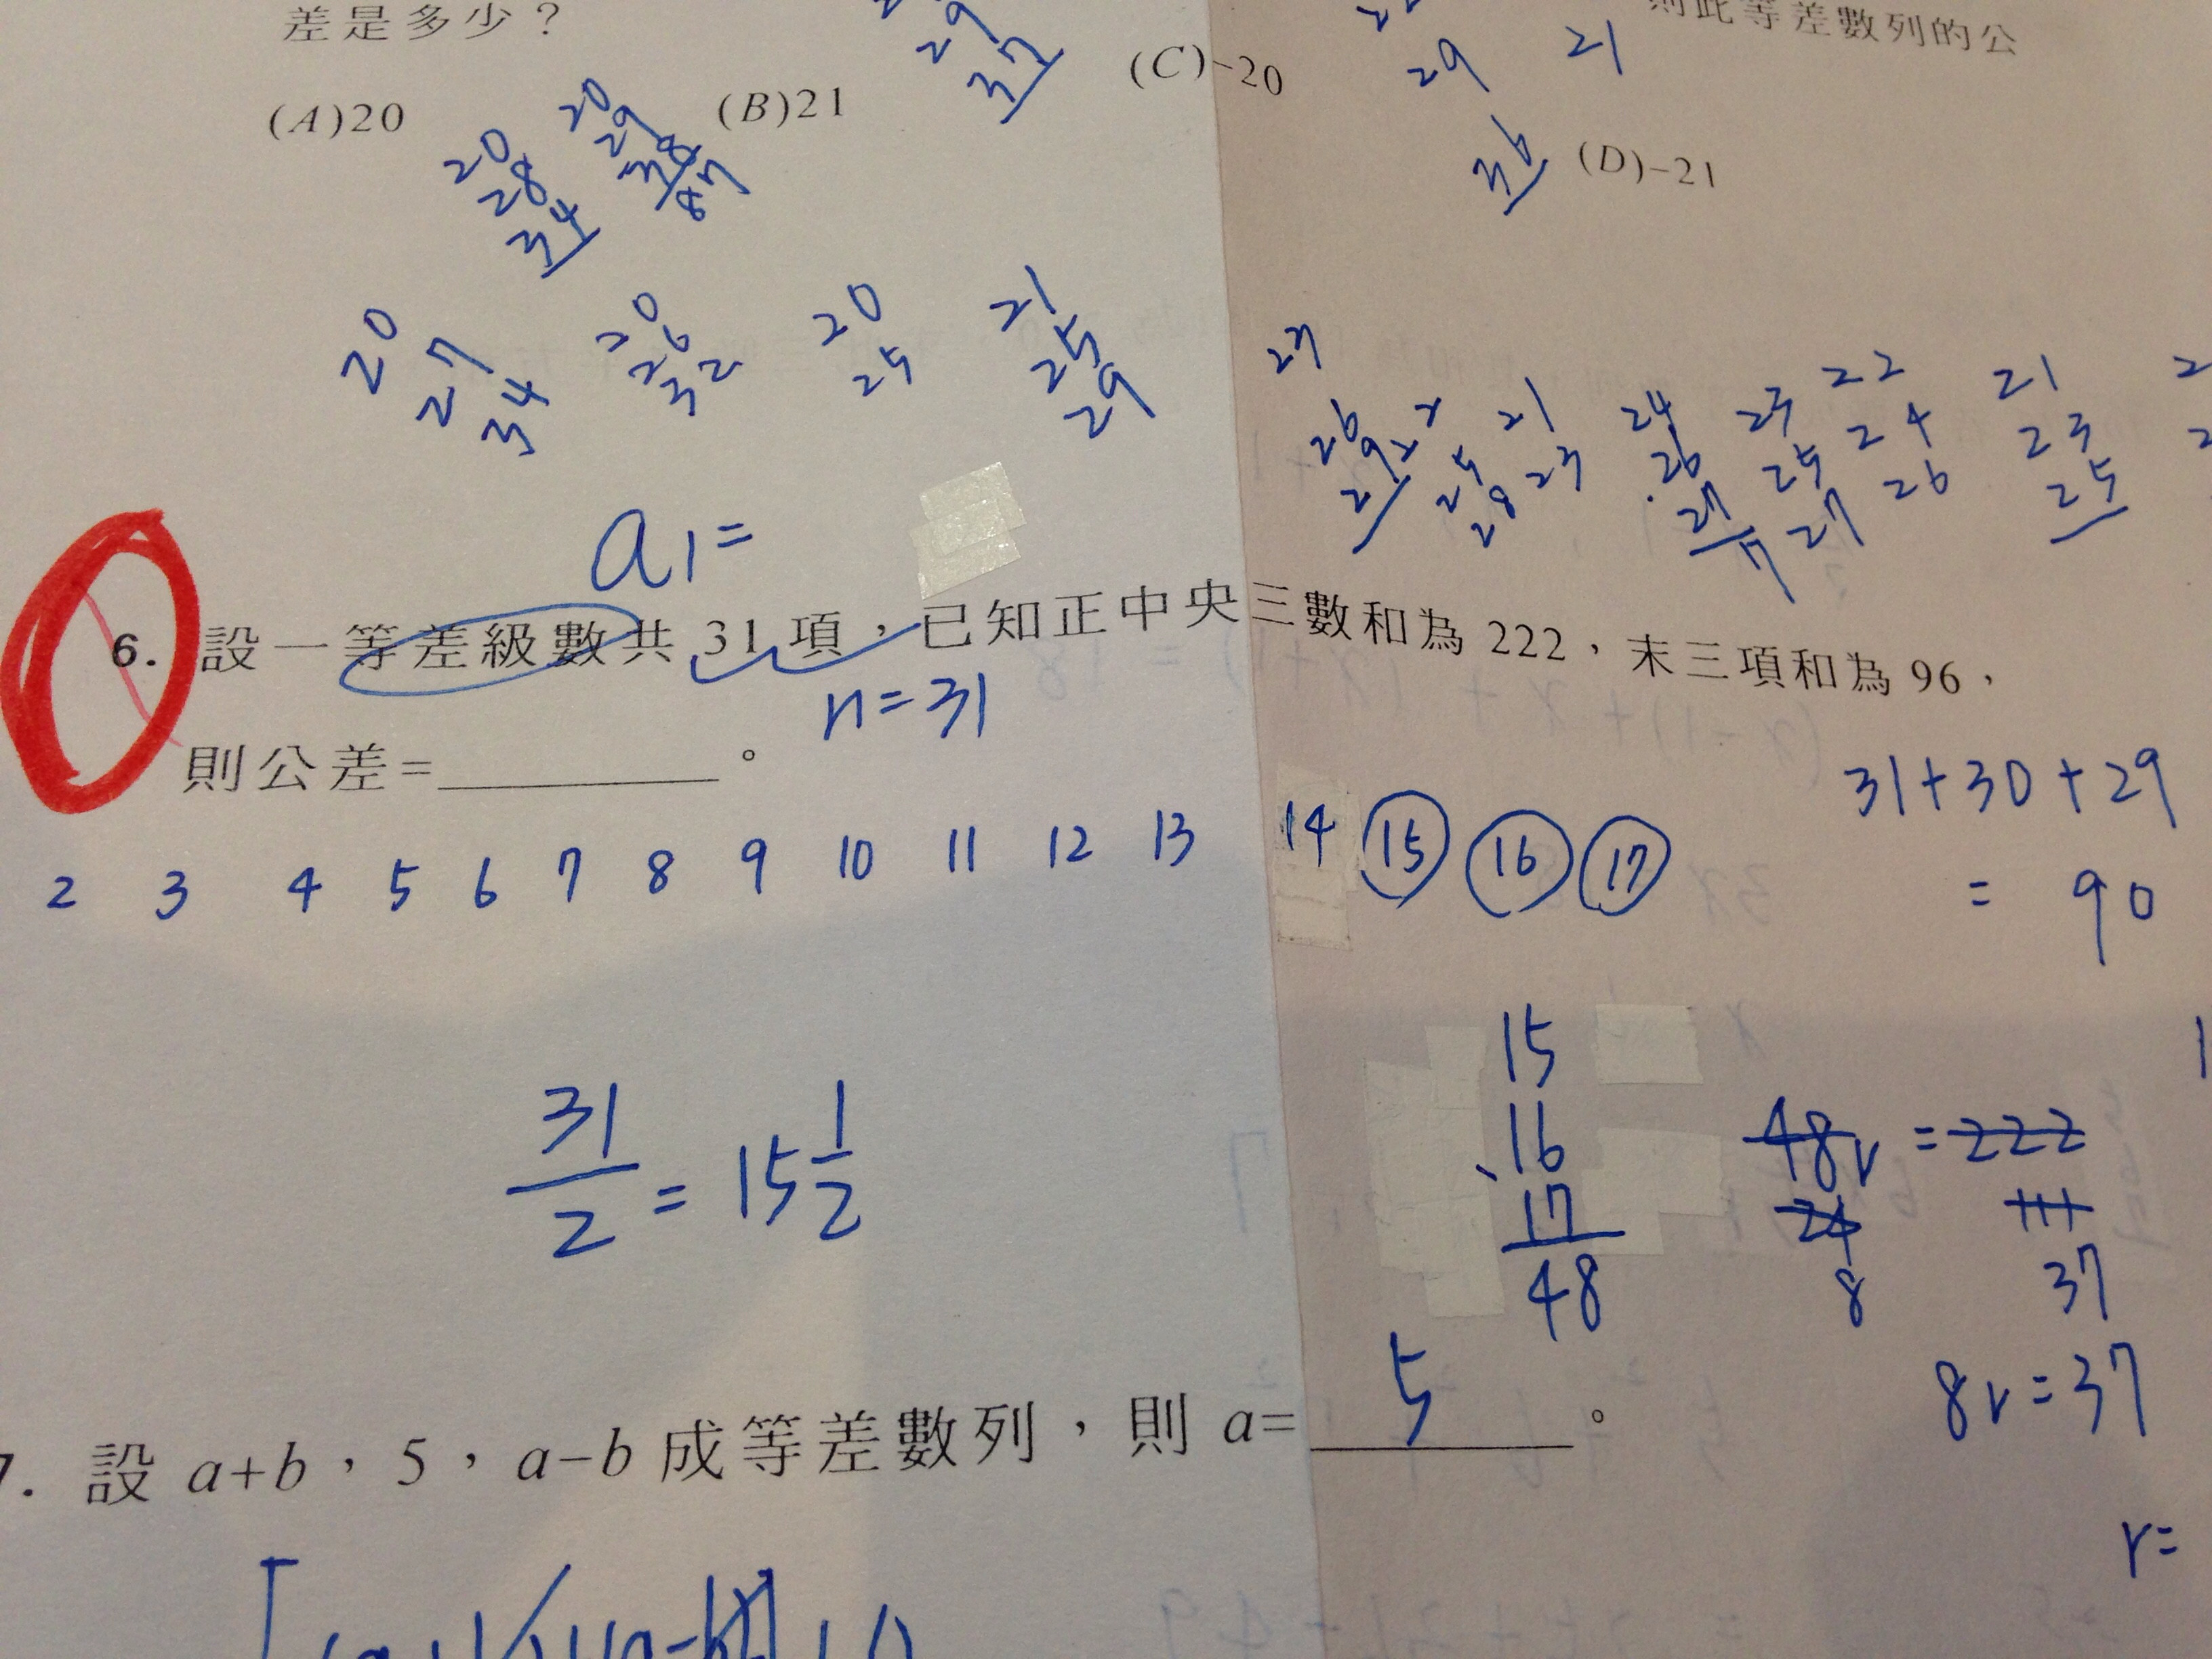 差是多少？
則此等差數列的公
(A)20
(B)21
(C)-20
(D)-21
29
37
29
21
36
20
28
34
20
29
38
87
20
27
34
20
26
32
20
25
21
25
29
27
26
25
28
21
23
24
26
27
23
25
27
22
24
26
21
23
25
a1=
6. 設一等差級數共 31 項，已知正中央三數和為 222，末三項和為 96，
n=31
則公差=________。
31+30+29
= 90
2 3 4 5 6 7 8 9 10 11 12 13 14 15 16 17
31/2 = 15 1/2
15
16
17
48
48r = 222
24 111
8 37
8r=37
r=
設 a+b，5，a-b 成等差數列，則 a= 5 。